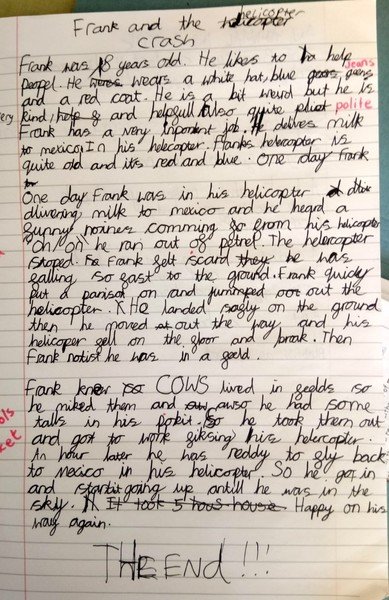 Frank and the helicopter
crash
Frank was 18 years old. He likes to help
peopel. He wears a white hat, blue jeens jeans
and a red coat. He is a bit weird but he is
kind, help & and helpfull also quite polite
Frank has a very inportent job. He delives milk
to mexico. In his helecopter. Franks helecopter is
quite old and it's red and blue. One day Frank
One day Frank was in his helicopter
dlivering milk to mexico and he heard a
funny noines comming so from his helicopter
"oh on" he ran out of petrel. The helercopter
stoped. Frank felt scard they he was
falling so fast to the ground. Frank quicly
put a parison on and jummped out the
helicopter. HE landed safly on the ground
then he moved out the way and his
helicoper fell on the floor and break. Then
Frank notist he was in a feeld.
Frank knew COWS lived in feelds so
he milked them and awso he had some
talls in his pokit so he took them out
and got to work fiksing his helercopter.
An hour later he was reddy to fly back
to mexico in his helicopter. So he got in
and startit going up antill he was in the
sky. It took 5 hous house. Happy on his
way again.
THE END!!!
ket